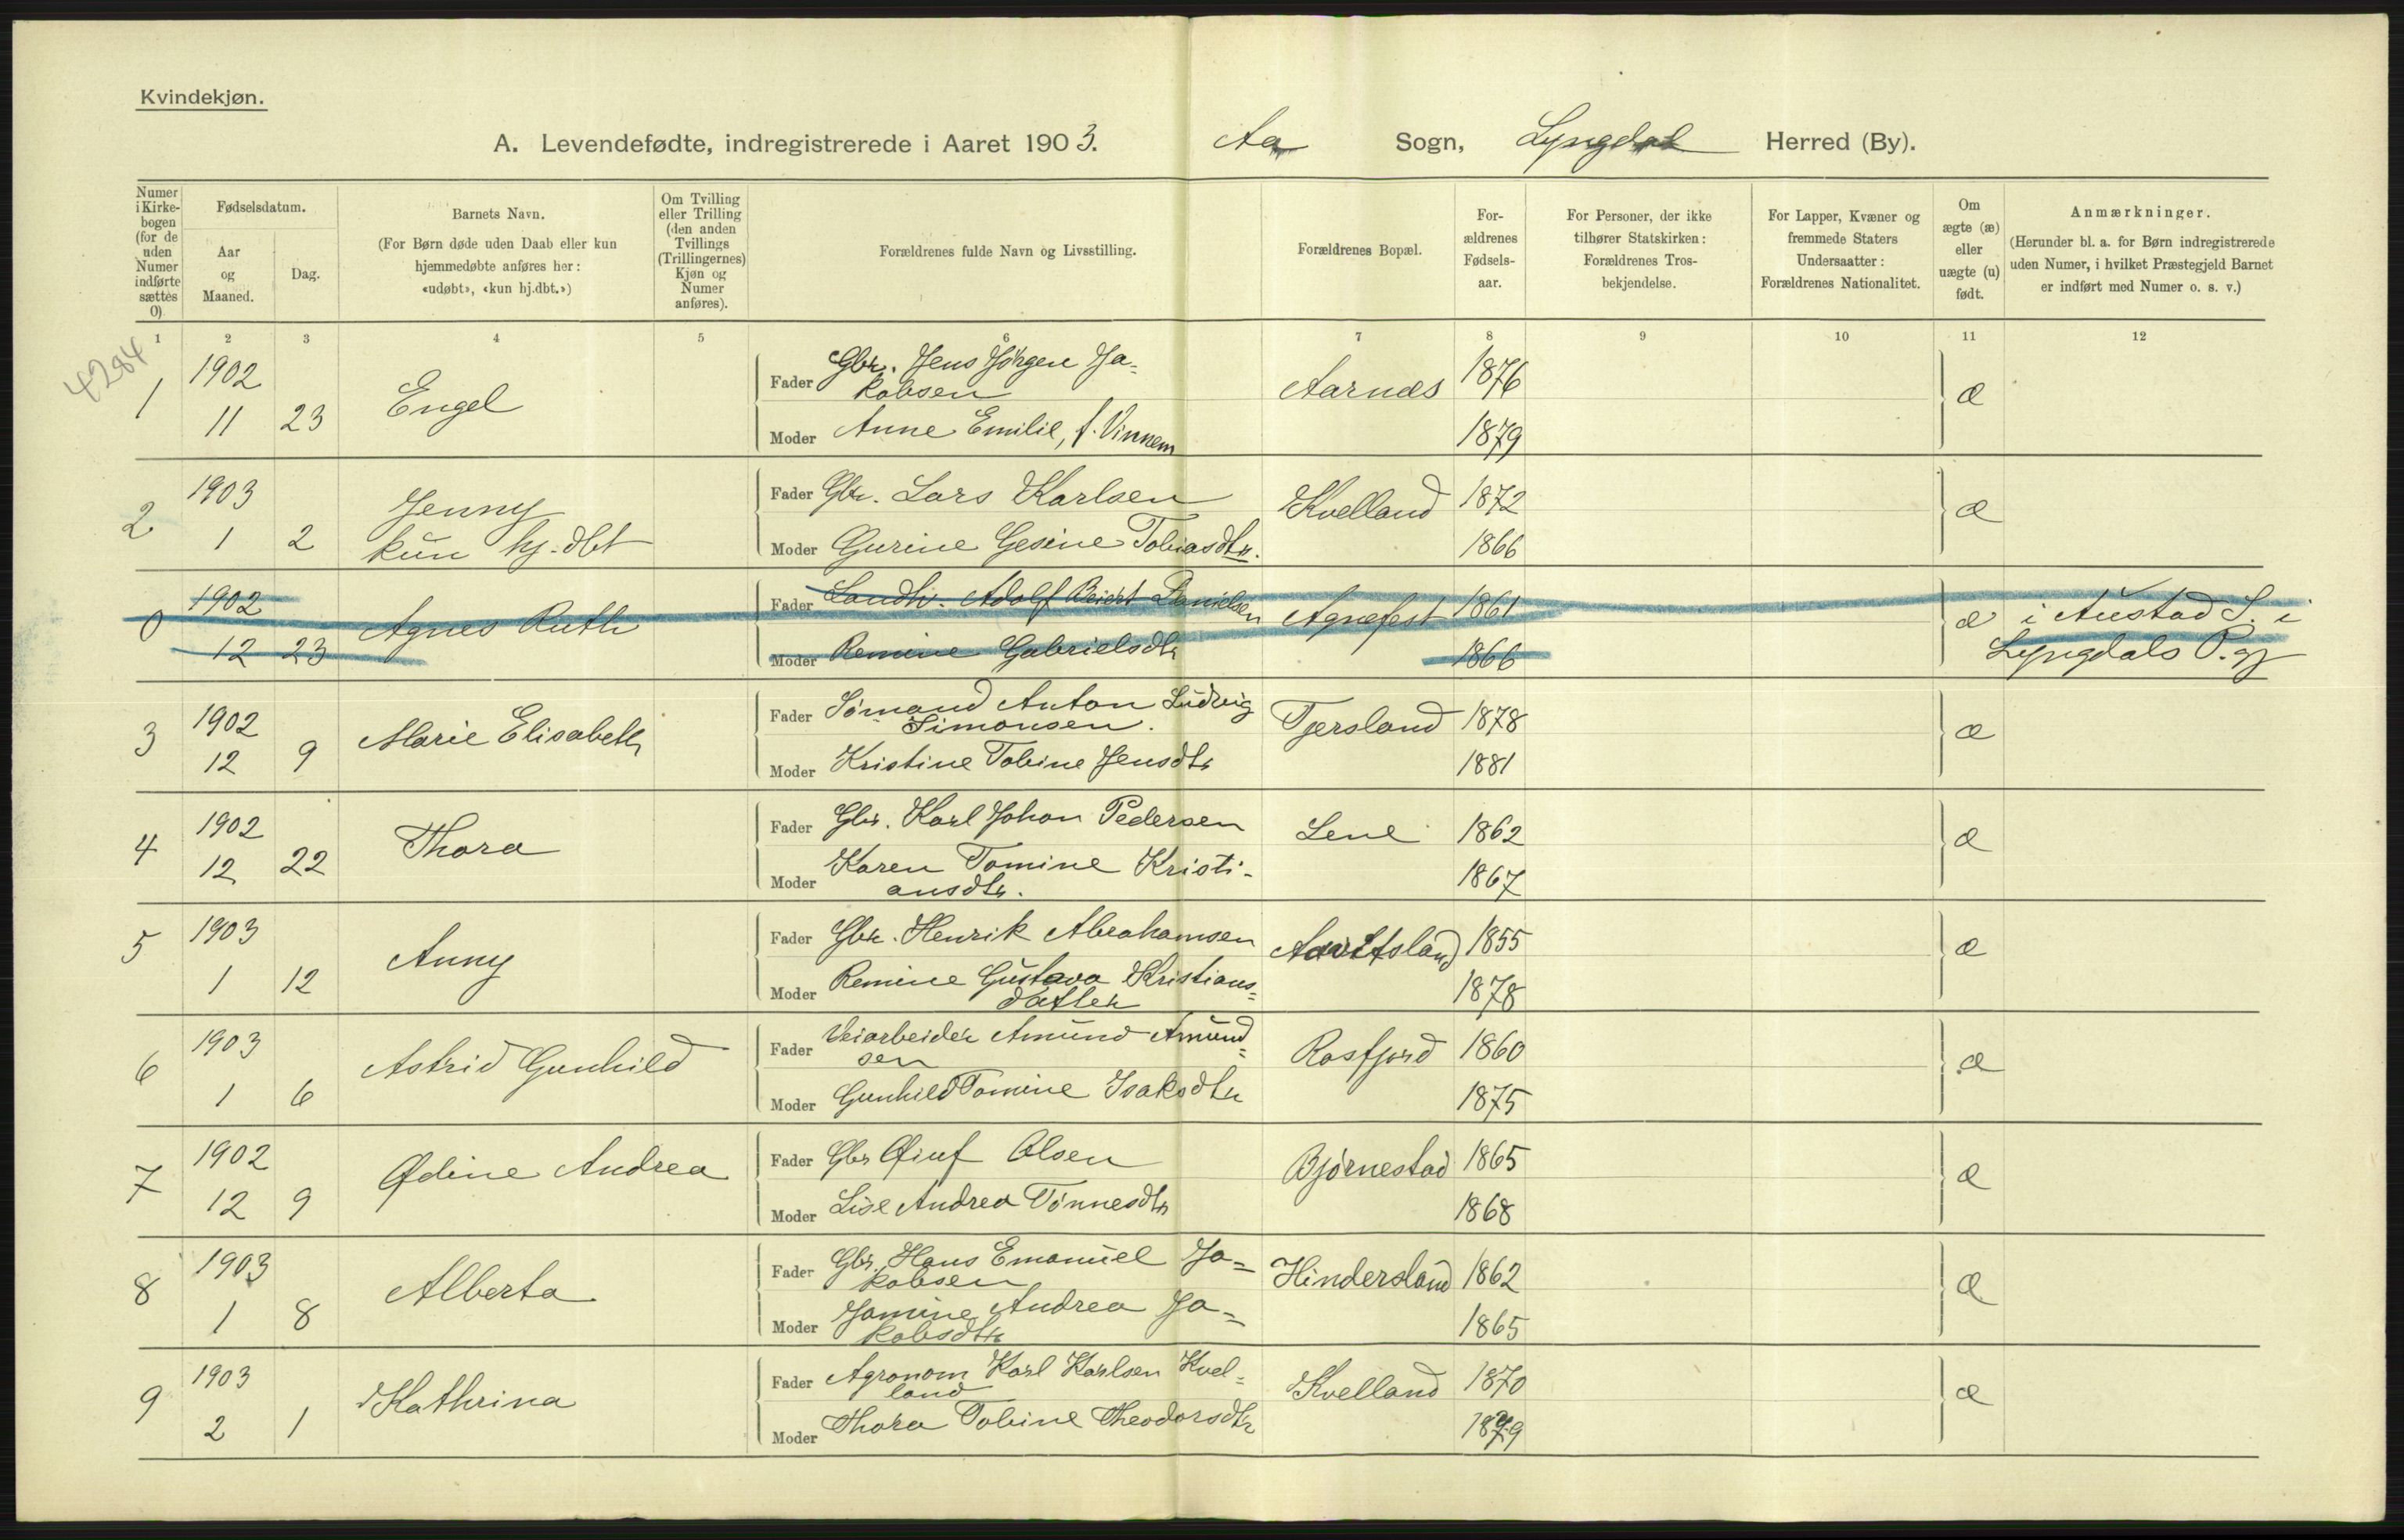 Kvindekjøn.
A. Levendefødte, indregistrerede i Aaret 1903. Aa Sogn, Lyngdal Herred (By).
Numer i Kirkebogen (for de uden Numer indførte sættes 0)
Fødselsdatum.
Aar og Maaned.
Dag.
Barnets Navn.
(For Børn døde uden Daab eller kun
hjemmedøbte anføres her:
«udøbt», «kun hj.dbt.»)
Om Tvilling
eller Trilling
(den anden
Tvillings
(Trillingernes)
Kjøn og
Numer
anføres).
Forældrenes fulde Navn og Livsstilling.
Forældrenes Bopæl.
For-
ældrenes
Fødsels-
aar.
For Personer, der ikke
tilhører Statskirken:
Forældrenes Tros-
bekjendelse.
For Lapper, Kvæner og
fremmede Staters
Undersaatter:
Forældrenes Nationalitet.
Om
ægte (æ)
eller
uægte (u)
født.
Anmærkninger.
(Herunder bl. a. for Børn indregistrerede
uden Numer, i hvilket Præstegjeld Barnet
er indført med Numer o. s. v.)
1 2 3 4 5 6 7 8 9 10 11 12
4284
1 1902 11 23 Engel
Fader Gbr. Jens Jørgen Ja-
kobsen Aarnæs 1876 æ
Moder Anne Emilie, f. Vinnem 1879
2 1903 1 2 Jenny
kun hj.dbt
Fader Gbr. Lars Karlsen Kvelland 1872 æ
Moder Gurine Gesine Tobiasdtr. 1866
0 1902 12 23 Agnes Ruth
Fader Landh. Adolf Beiert Danielsen Agnefest 1861 æ i Austad S. i
Moder Remine Gabrielsdtr 1866 Lyngdals P.gj
3 1902 12 9 Marie Elisabeth
Fader Sømand Anton Ludvig
Simonsen. Tjersland 1878 æ
Moder Kristine Tobine Jensdtr 1881
4 1902 12 22 Thora
Fader Gbr. Karl Johan Pedersen Lene 1862 æ
Moder Karen Tomine Kristi-
ansdtr. 1867
5 1903 1 12 Anny
Fader Gbr. Henrik Abrahamsen 1855 æ
Moder Remine Gustava Kristians=
datter 1878
6 1903 1 6 Astrid Gunhild
Fader Veiarbeider Amund Amund=
sen Rosfjord 1860 æ
Moder Gunhild Tomine Isaksdtr 1875
7 1902 12 9 Ødine Andrea
Fader Gbr Olsen Bjørnestad 1865 æ
Moder Lise Andrea Tønnesdtr 1868
8 1903 1 8 Alberta
Fader Gbr. Hans Emanuel Ja=
kobsen Hindersland 1862 æ
Moder Jamine Andrea Ja=
kobsdtr 1865
9 1903 2 1 Kathrina
Fader Agronom Karl Karlsen Kvel=
land Kvelland 1870 æ
Moder Thora Tobine Theodorsdtr 1879